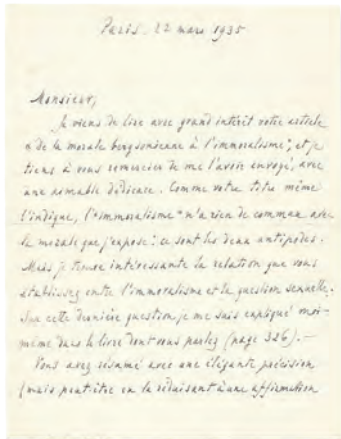 Paris. 22 mars 1935
Monsieur,
Je viens de lire avec grand intérêt votre article
« de la morale bergsonienne à l'immoralisme », et je
tiens à vous remercier de me l'avoir envoyé, avec
une aimable dédicace. Comme votre titre même
l'indique, l'"immoralisme" n'a rien de commun avec
la morale que j'expose : ce sont les deux antipodes.
Mais je trouve intéressante la relation que vous
établissez entre l'immoralisme et la question sexuelle.
Sur cette dernière question, je me suis expliqué moi-
même dans le livre dont vous parlez (page 326). —
Vous avez résumé avec une élégante précision
(mais peut-être en la réduisant à une affirmation